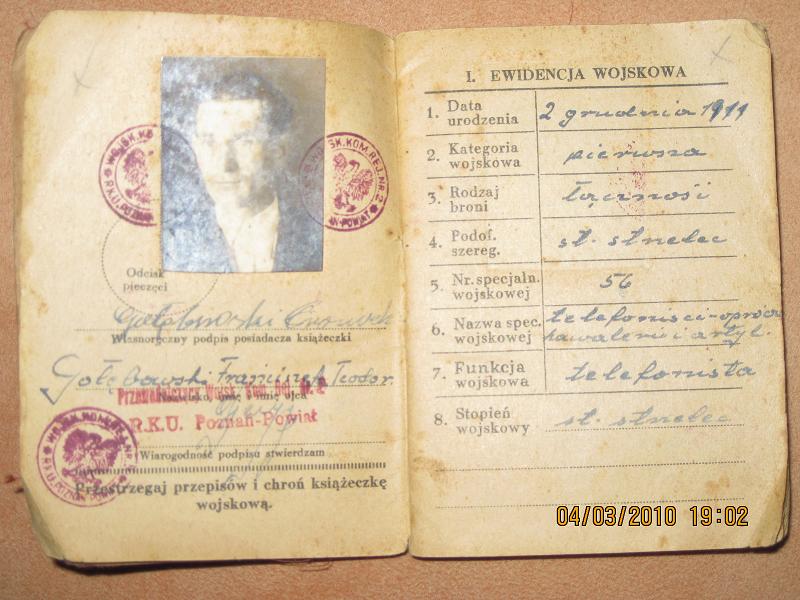 WOJSK.KOM.REJ.NR.2
R.K.U. POZNAŃ-POWIAT
Odcisk
pieczęci
Własnoręczny podpis posiadacza książeczki
Gołębowski Franciszek Teodor
Przewodniczący Wojsk. Kom. Rej. Nr. 2
Nazwisko, imię i imię ojca
R.K.U. Poznań-Powiat
Wiarogodność podpisu stwierdzam
Przestrzegaj przepisów i chroń książeczkę
wojskową.
I. EWIDENCJA WOJSKOWA
1. Data urodzenia 2 grudnia 1911
2. Kategoria wojskowa pierwsza
3. Rodzaj broni łączności
4. Podof. szereg. st. strzelec
5. Nr. specjaln. wojskowej 56
6. Nazwa spec. wojskowej telefoniści-oprócz
kawalerii i artyl.
7. Funkcja wojskowa telefonista
8. Stopień wojskowy st. strzelec
04/03/2010 19:02